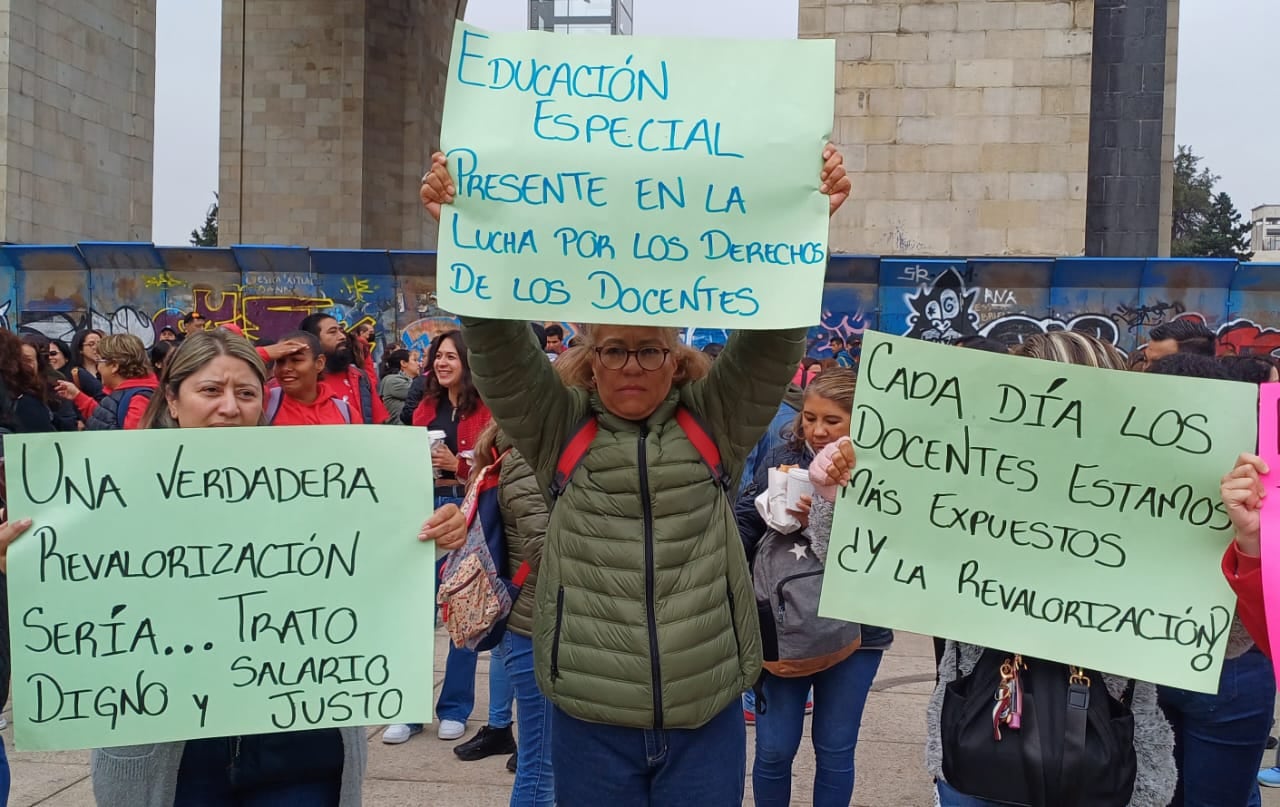 EDUCACIÓN
ESPECIAL
PRESENTE EN LA
LUCHA POR LOS DERECHOS
DE LOS DOCENTES
UNA VERDADERA
REVALORIZACIÓN
SERÍA... TRATO
DIGNO y SALARIO
JUSTO
CADA DÍA LOS
DOCENTES ESTAMOS
MÁS EXPUESTOS
¿Y LA REVALORIZACIÓN?
SR
RNA